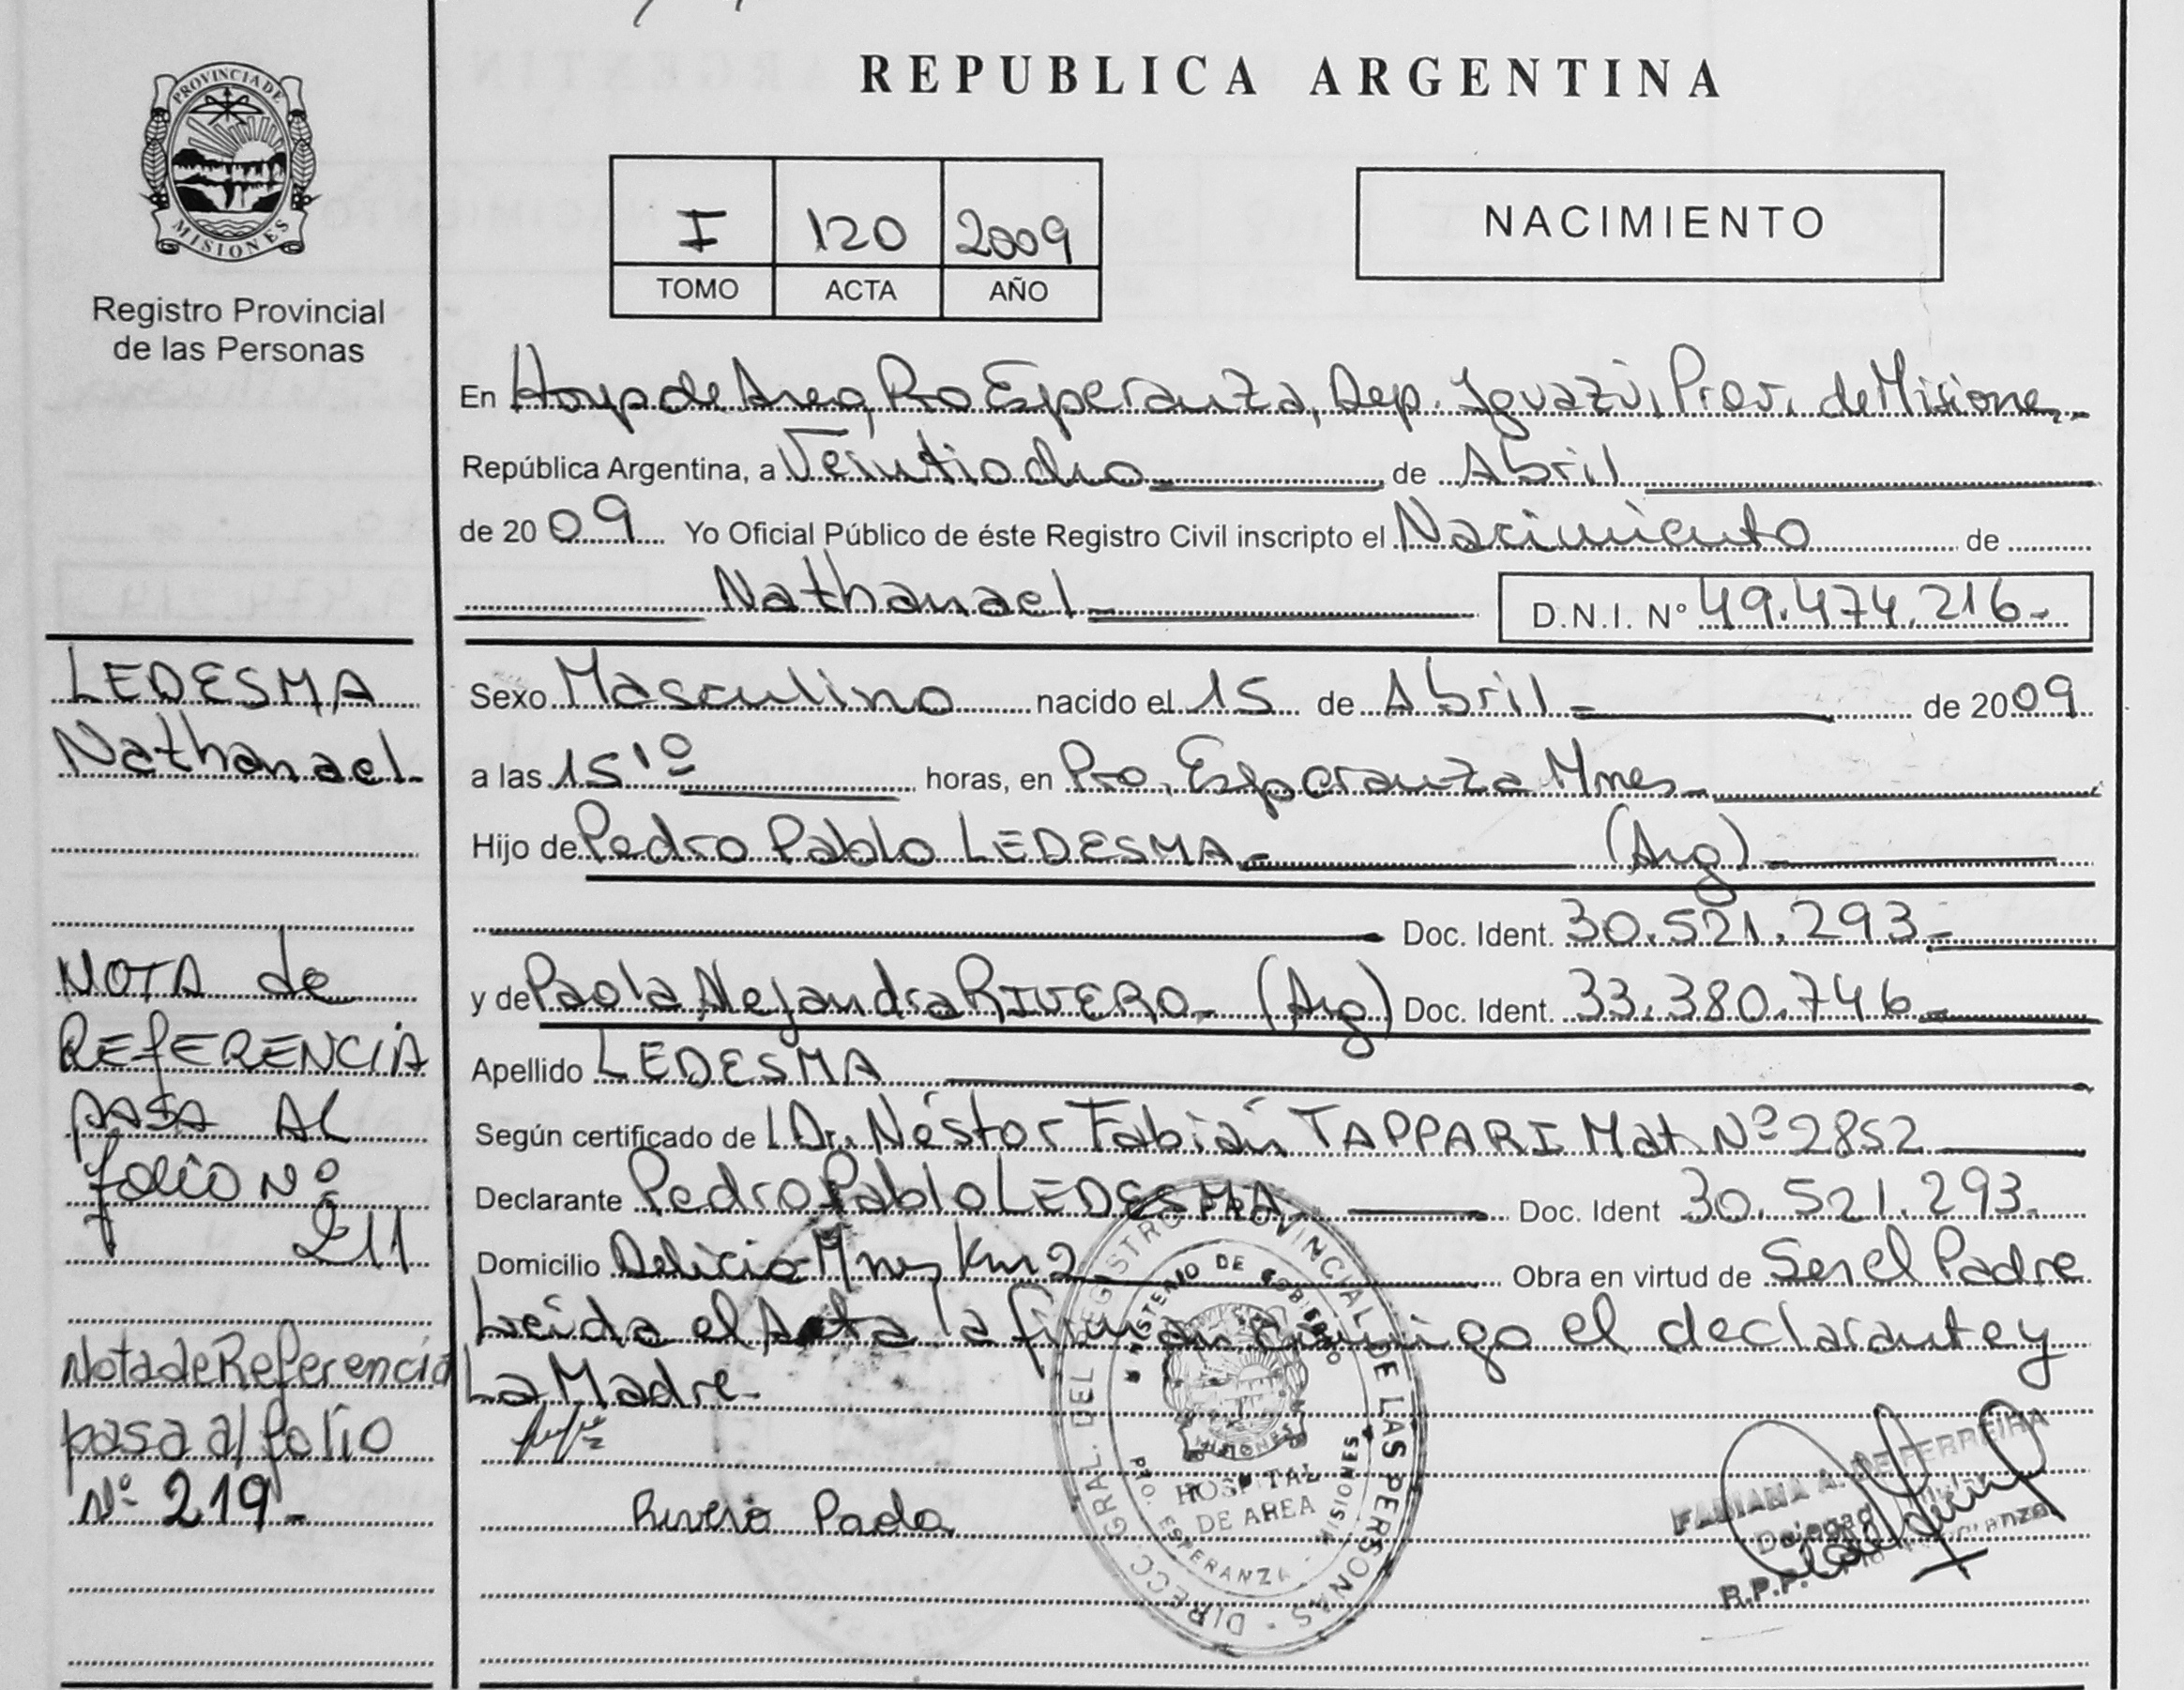 PROVINCIA DE
MISIONES
Registro Provincial
de las Personas
REPUBLICA ARGENTINA
I 120 2009
TOMO ACTA AÑO
NACIMIENTO
En Hosp de Area, Pto Esperanza, Dep. Iguazú, Prov. de Misiones
República Argentina, a Veintiocho de Abril
de 2009 Yo Oficial Público de éste Registro Civil inscripto el Nacimiento de
Nathanael D.N.I. Nº 49.474.216.-
LEDESMA
Nathanael
NOTA de
REFERENCIA
PASA AL
folio Nº
211
Nota de Referencia
pasa al folio
Nº 219-
Sexo Masculino nacido el 15 de Abril de 2009
a las 15 1º horas, en Pto. Esperanza Mnes
Hijo de Pedro Pablo LEDESMA (Arg)
Doc. Ident. 30.521.293
y de Paola Alejandra RIVERO (Arg) Doc. Ident. 33.380.746
Apellido LEDESMA
Según certificado de Dr. Néstor Fabián TAPPARI Mat Nº 2852
Declarante Pedro Pablo LEDESMA Doc. Ident 30.521.293.
Domicilio Delicia Mnes Km 2 Obra en virtud de Ser el Padre
Leida el Acta la firman conmigo el declarante y
La Madre
Rivero Paola
DIRECC. GRAL. DEL REGISTRO PROVINCIAL DE LAS PERSONAS
MINISTERIO DE GOBIERNO
MISIONES
HOSPITAL
DE AREA
PTO. ESPERANZA - MISIONES
FABIANA A. DE FERREIRA
R.P.P.